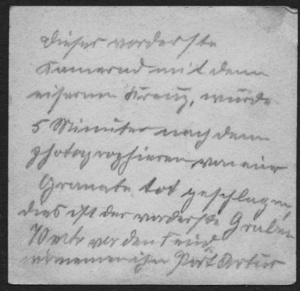 dieser vorderste
Kamerad mit dem
eisernen Kreuz, wurde
5 Minuten nach dem
photographieren von einer
Granate tot geschlagen,
dies ist der vorderste Graben
vor den Feind
Port Artur